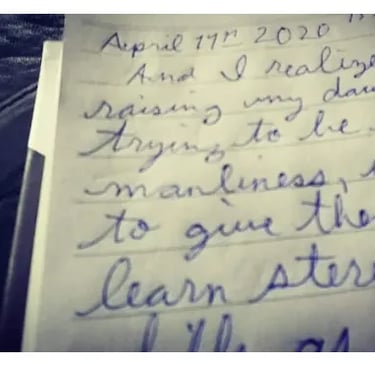 April 19th 2020
And I realize
raising my dau
trying to be
manliness,
to give the
learn ster